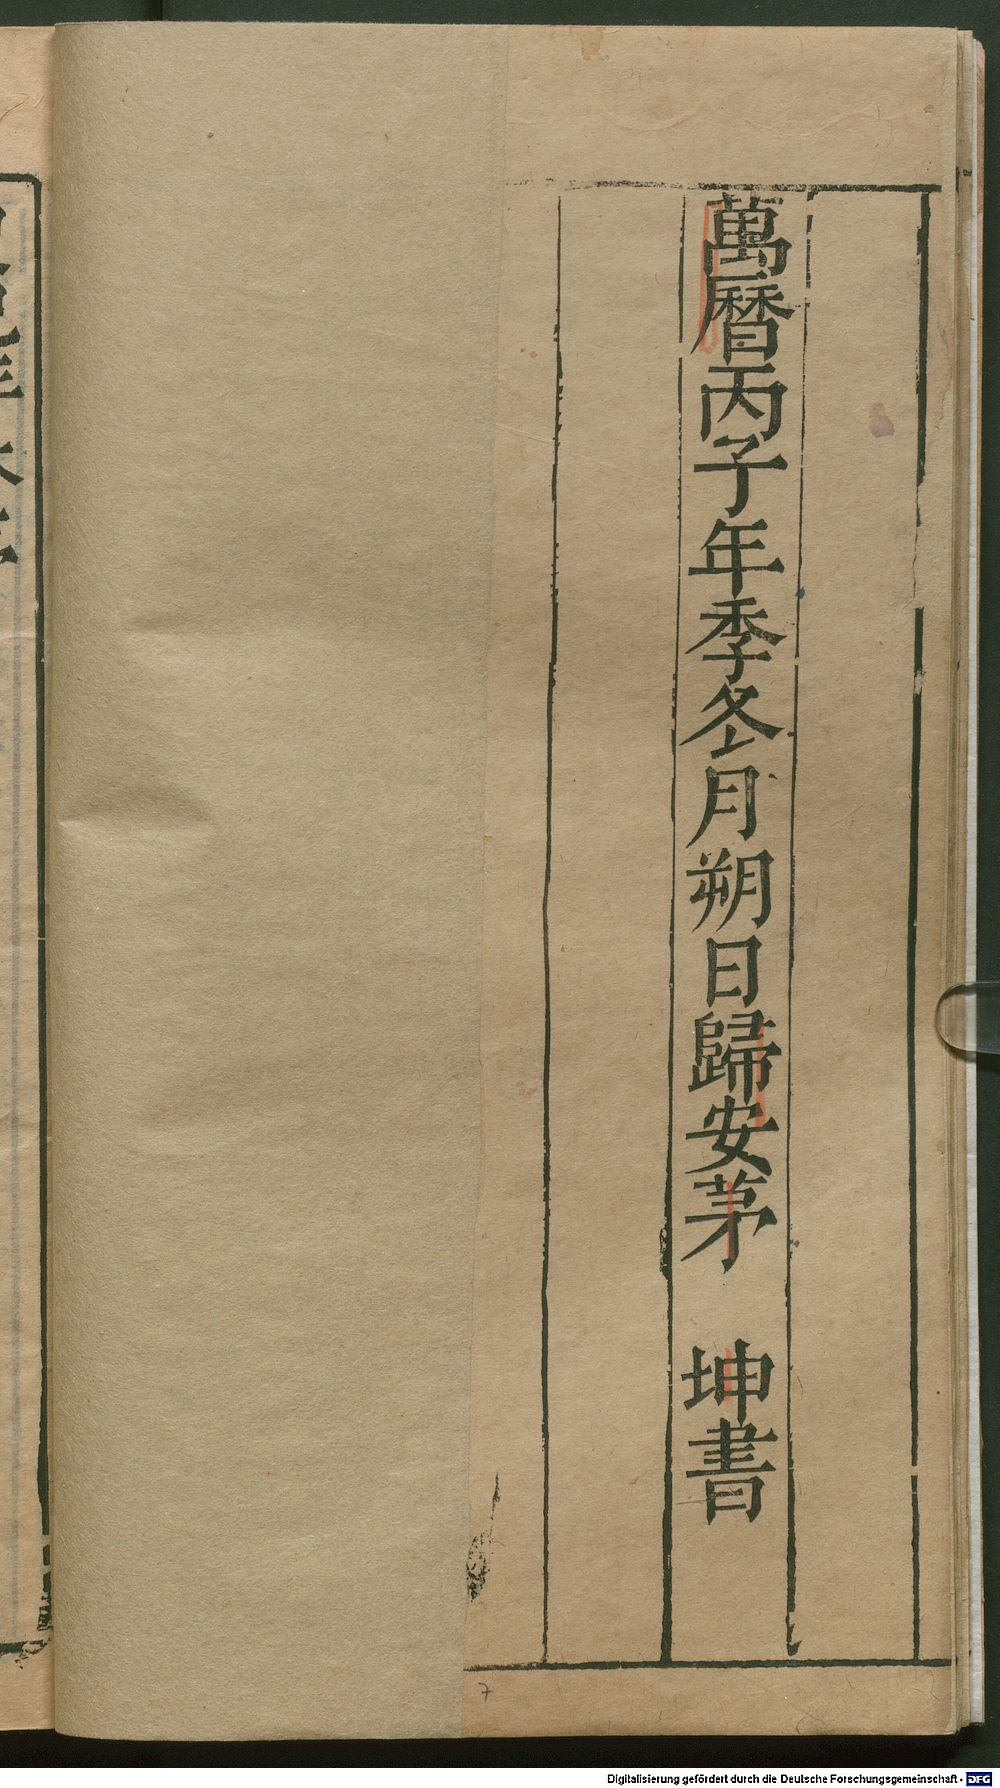 萬曆丙子年季冬月朔日歸安茅 坤書
7
Digitalisierung gefördert durch die Deutsche Forschungsgemeinschaft - DFG